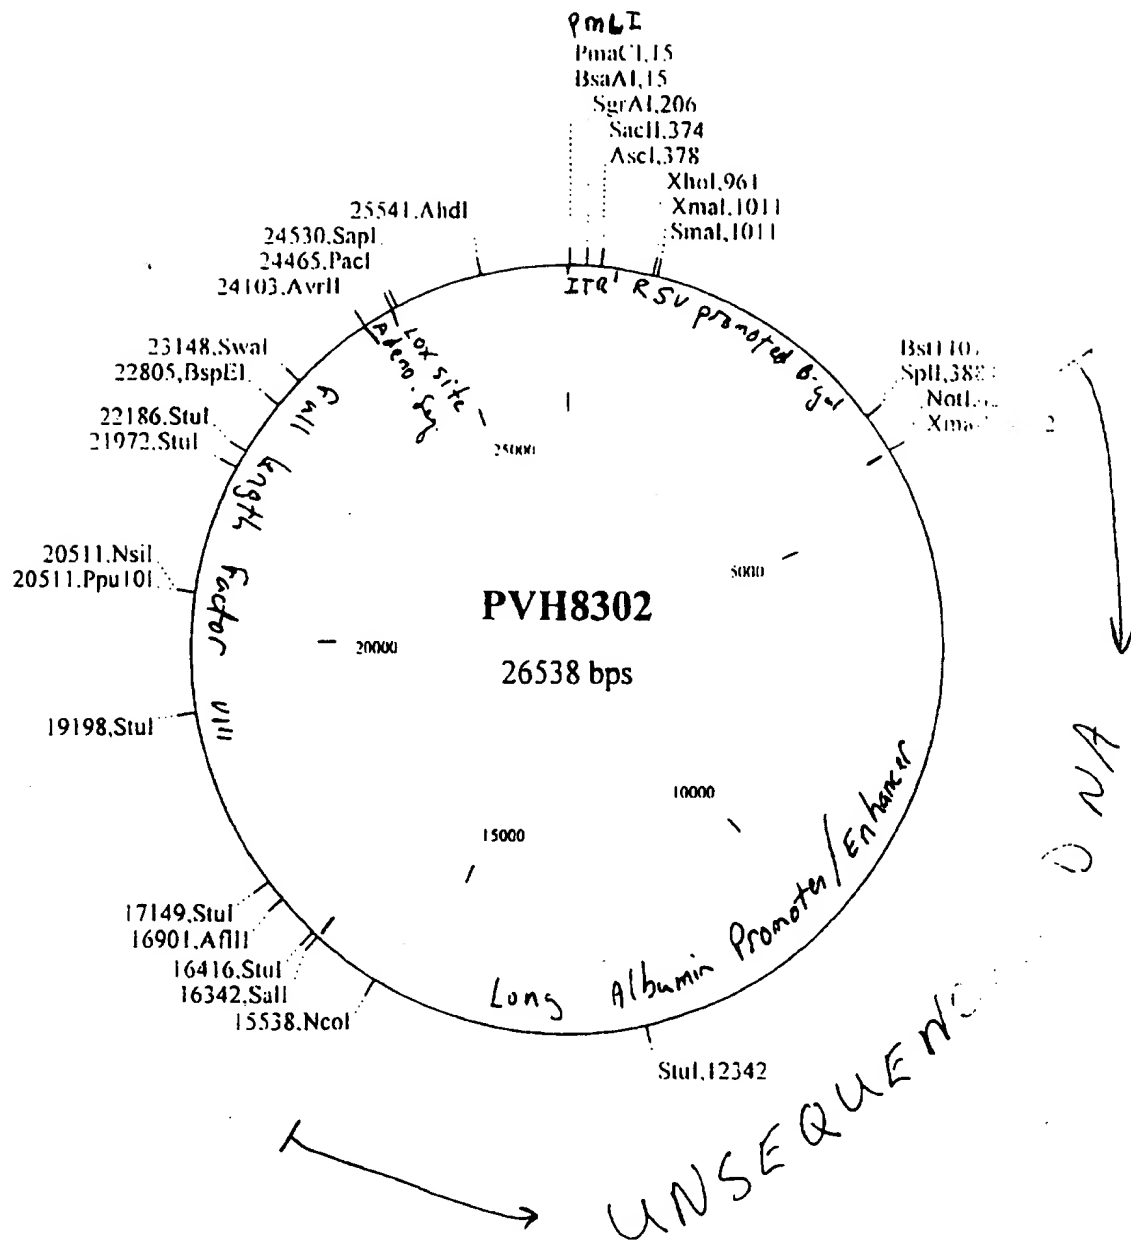 PmLI
PmaCI,15
BsaAI,15
SgrAI,206
SacII,374
AscI,378
XhoI,961
XmaI,1011
SmaI,1011
25541,AhdI
24530,SapI
24465,PacI
24103,AvrII
23148,SwaI
22805,BspEI
22186,StuI
21972,StuI
20511,NsiI
20511,Ppu10I
19198,StuI
17149,StuI
16901,AflII
16416,StuI
16342,SalI
15538,NcoI
StuI,12342
ITR
RSV promoted B-gal
Lox site
Adeno. Seq.
Full length Factor VIII
25000
5000
20000
10000
15000
PVH8302
26538 bps
Long Albumin Promoter/Enhancer
DNA